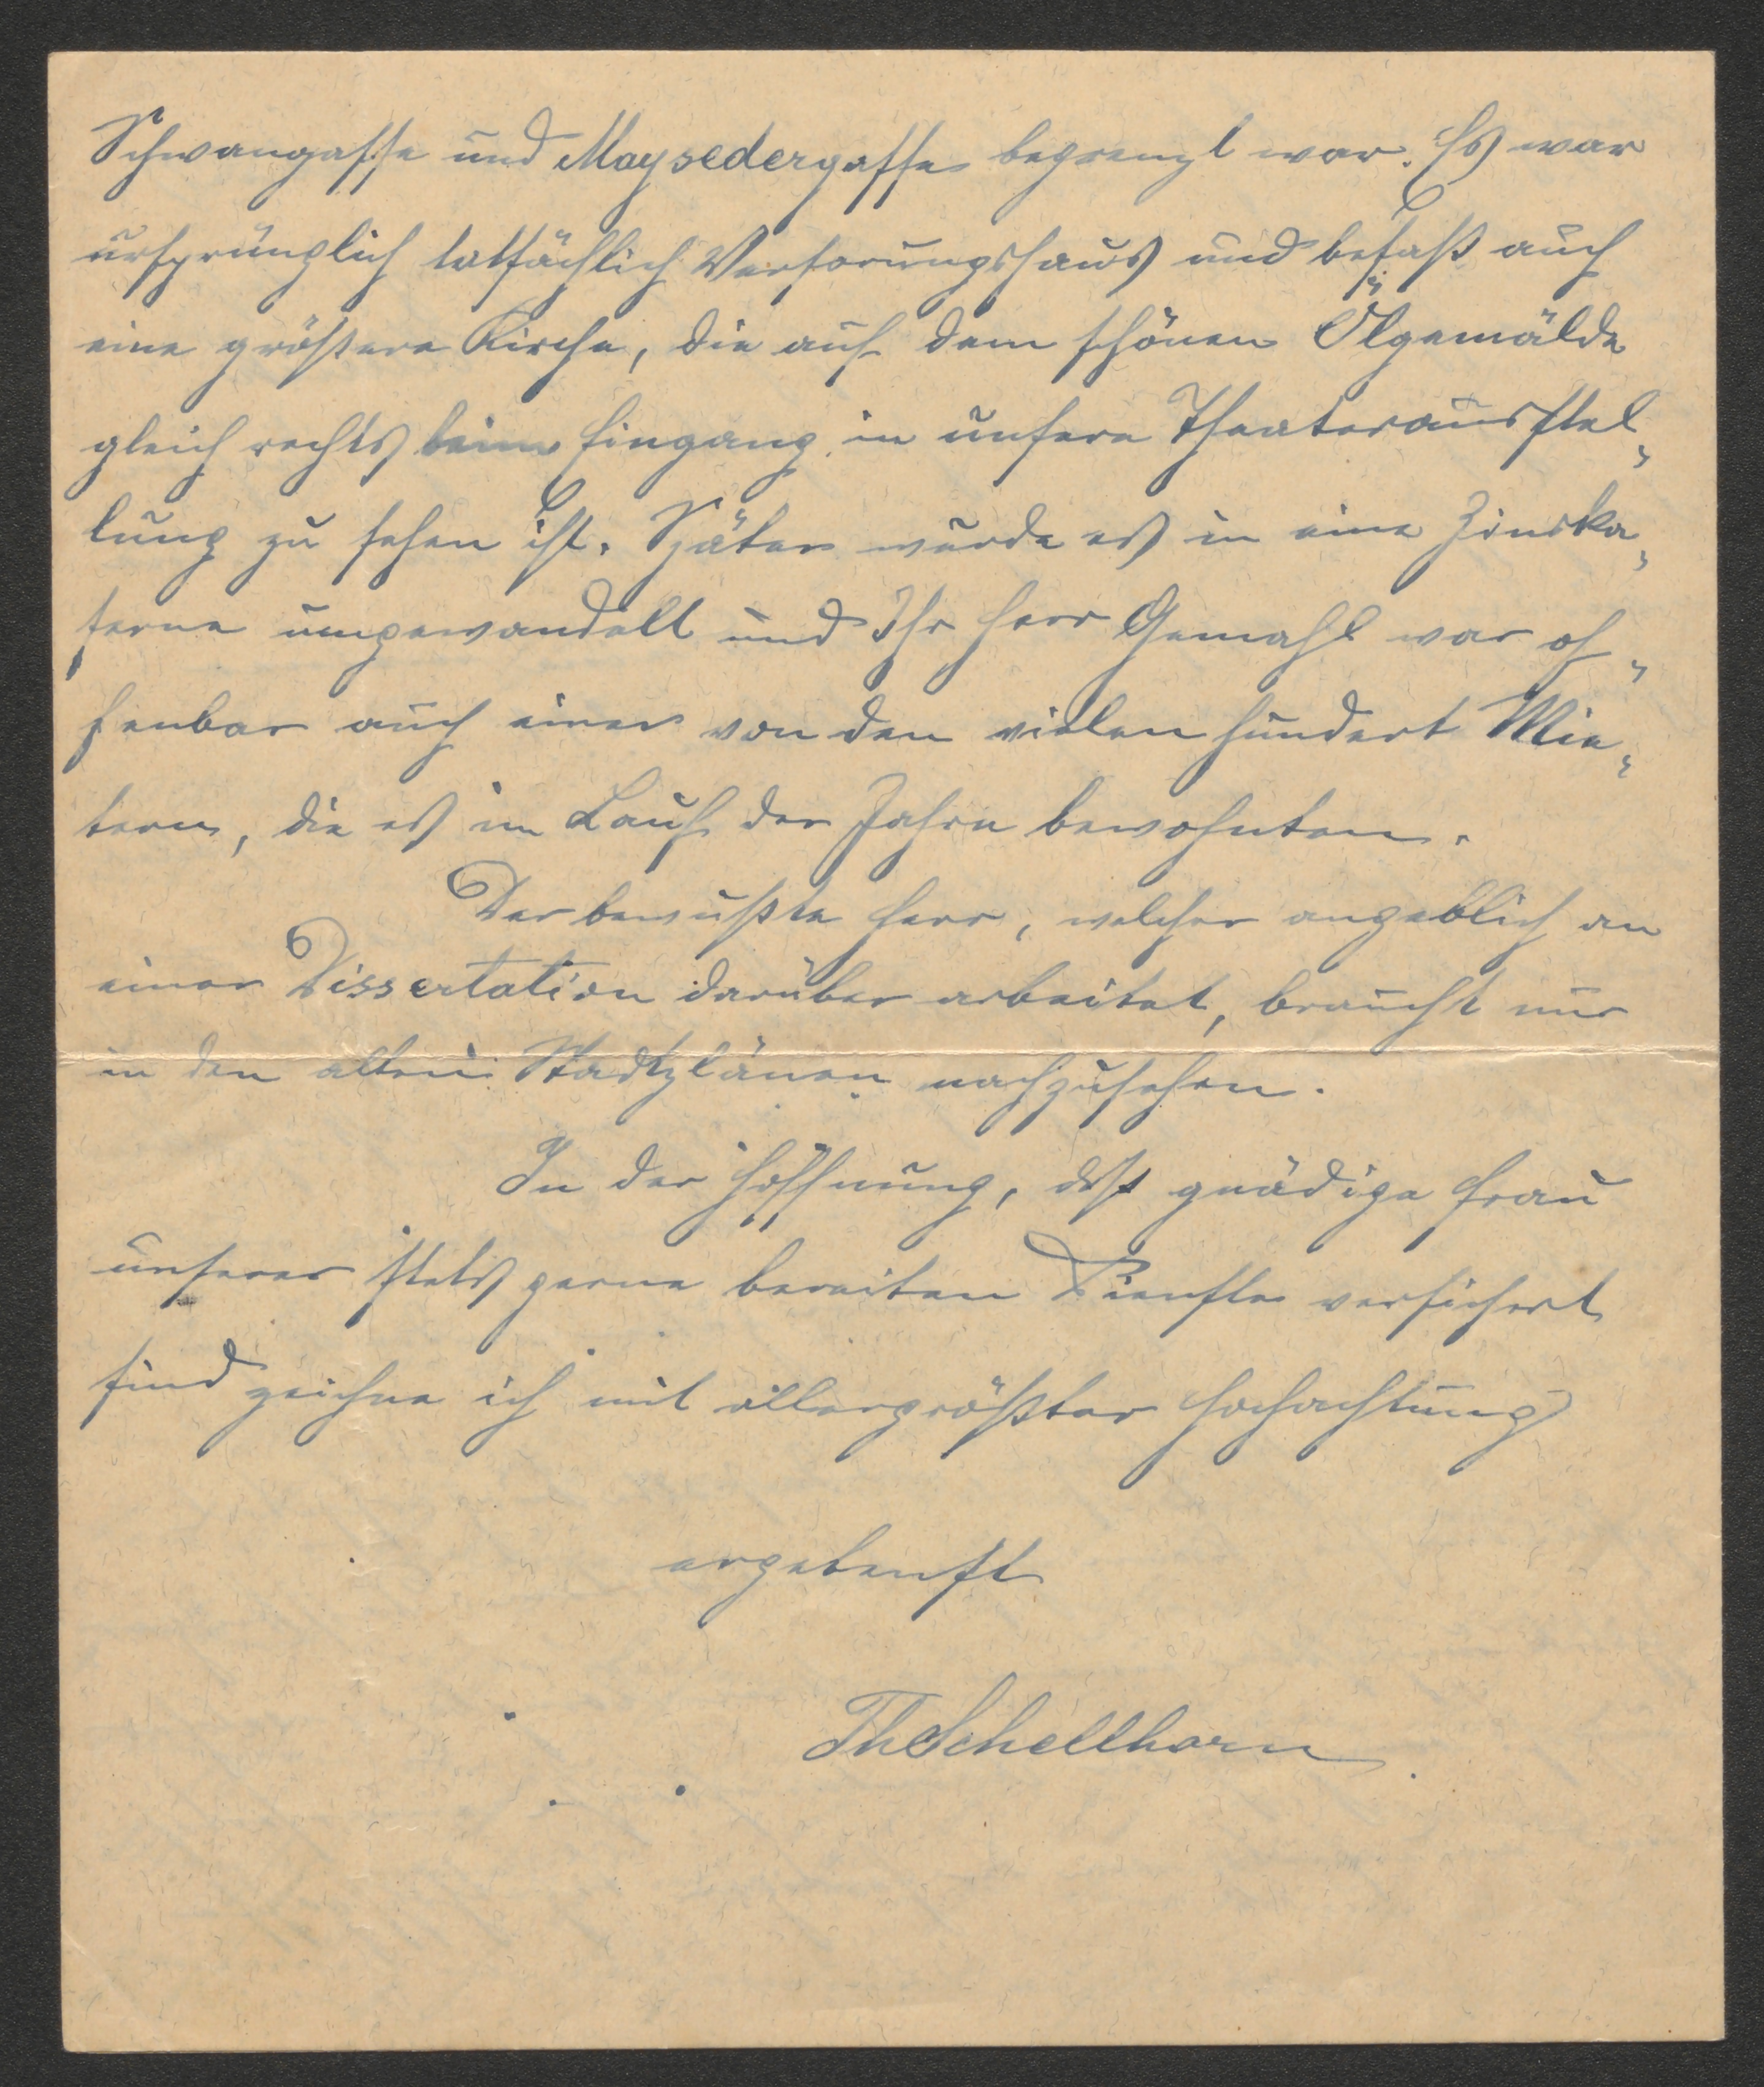 Schwangasse und Maysedergasse begrenzt war. Es war
ursprünglich tatsächlich Versorungshaus und besaß auch
eine größere Kirche, die auf dem schönen Ölgemälde
gleich rechts beim Eingang in unsere Theaterausstel-
lung zu sehen ist. Später wurde es in eine Zinska-
serne umgewandelt und Ihr Herr Gemahl war of-
fenbar auch einer von den vielen hundert Mie-
tern, die es im Lauf der Jahre bewohnten.
Der bewußte Herr, welcher angeblich an
einer Dissertation darüber arbeitet, braucht nur
in den alten Stadtplänen nachzusehen.
In der Hoffnung, daß gnädige Frau
unserer stets gerne bereiten Dienste versichert
sind zeichne ich mit allergrößter Hochachtung
ergebenst
ThSchellhorn